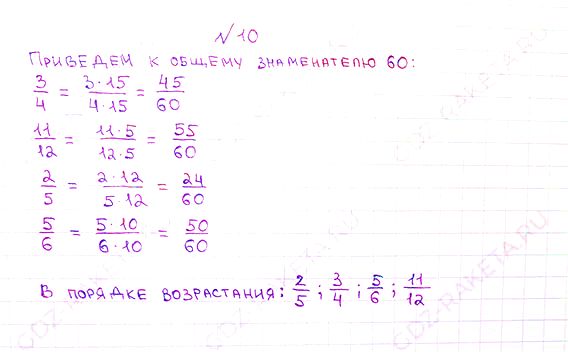 №10
ПРИВЕДЕМ К ОБЩЕМУ ЗНАМЕНАТЕЛЮ 60:
3/4 = 3·15/4·15 = 45/60
11/12 = 11·5/12·5 = 55/60
2/5 = 2·12/5·12 = 24/60
5/6 = 5·10/6·10 = 50/60
В ПОРЯДКЕ ВОЗРАСТАНИЯ: 2/5 ; 3/4 ; 5/6 ; 11/12
GDZ-RAKETA.RU
GDZ-RAKETA.RU
GDZ-RAKETA.RU